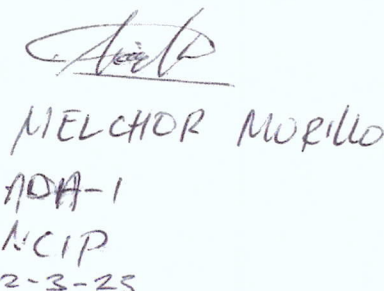 MELCHOR MORILLO
ADA-1
NCIP
2-3-25